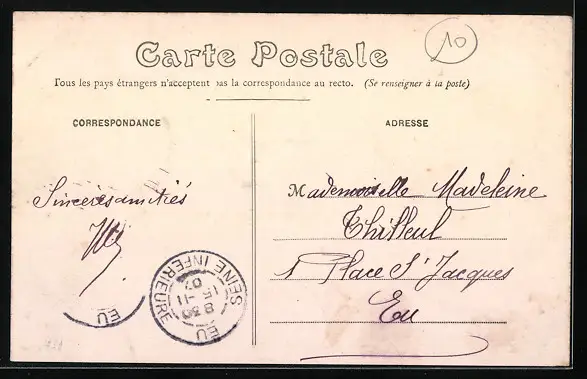 10
Carte Postale
Tous les pays étrangers n'acceptent pas la correspondance au recto. (Se renseigner à la poste)
CORRESPONDANCE
ADRESSE
Sincères amitiés
Mademoiselle Madeleine
Thilleul
1 Place St Jacques
Eu
EU
SEINE INFERIEURE
8 30
15 -11
07
EU